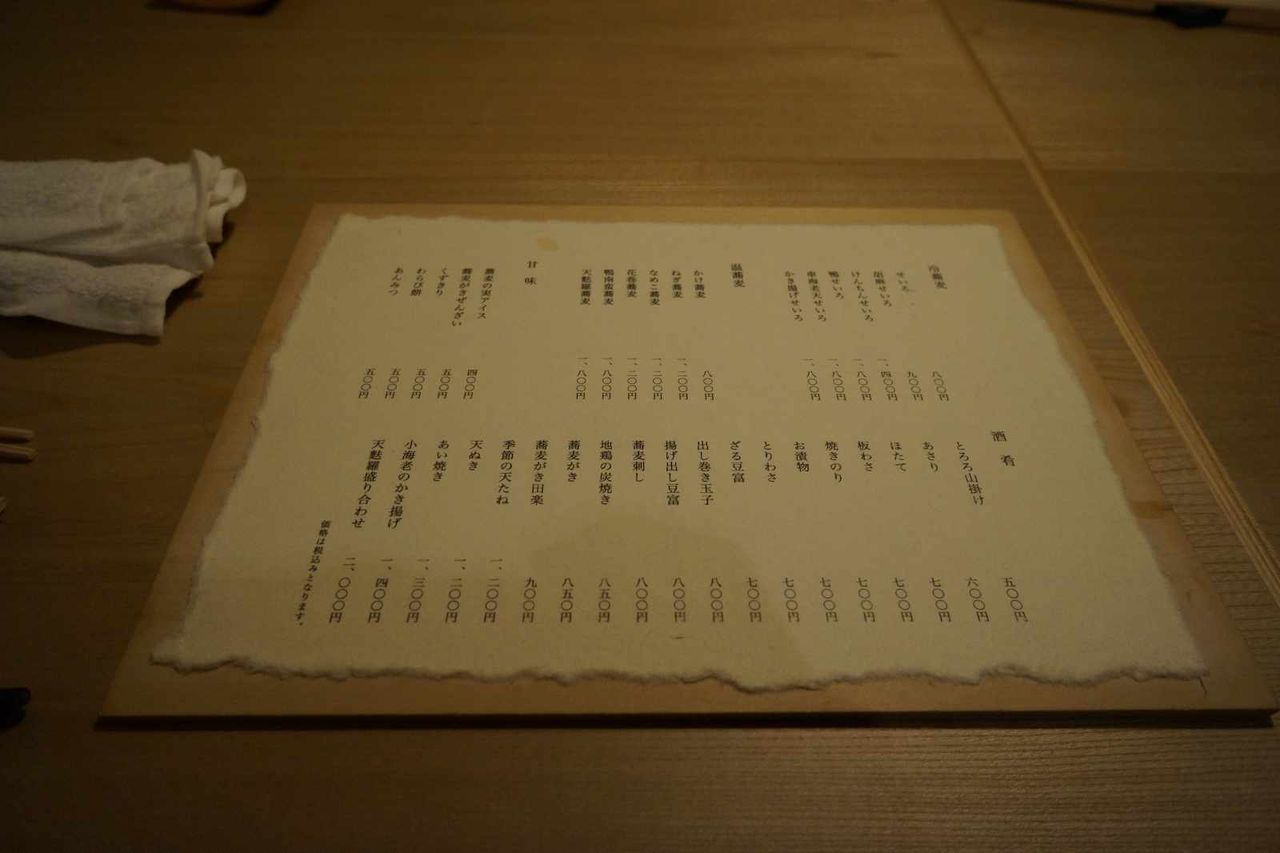 冷蕎麦
せいろ 八〇〇円
胡麻せいろ 九〇〇円
けんちんせいろ 一、四〇〇円
鴨せいろ 一、八〇〇円
車海老天せいろ 一、八〇〇円
かき揚げせいろ 一、八〇〇円
温蕎麦
かけ蕎麦 八〇〇円
ねぎ蕎麦 一、二〇〇円
なめこ蕎麦 一、二〇〇円
花巻蕎麦 一、二〇〇円
鴨南蛮蕎麦 一、八〇〇円
天麩羅蕎麦 一、八〇〇円
甘味
蕎麦の実アイス 四〇〇円
蕎麦がきぜんざい 五〇〇円
くずきり 五〇〇円
わらび餅 五〇〇円
あんみつ 五〇〇円
酒肴
とろろ山掛け 五〇〇円
あさり 六〇〇円
ほたて 七〇〇円
板わさ 七〇〇円
焼きのり 七〇〇円
お漬物 七〇〇円
とりわさ 七〇〇円
ざる豆富 七〇〇円
出し巻き玉子 八〇〇円
揚げ出し豆富 八〇〇円
蕎麦刺し 八〇〇円
地鶏の炭焼き 八五〇円
蕎麦がき 八五〇円
蕎麦がき田楽 九〇〇円
季節の天たね 一、二〇〇円
天ぬき 一、二〇〇円
あい焼き 一、三〇〇円
小海老のかき揚げ 一、四〇〇円
天麩羅盛り合わせ 二、〇〇〇円
価格は税込みとなります。